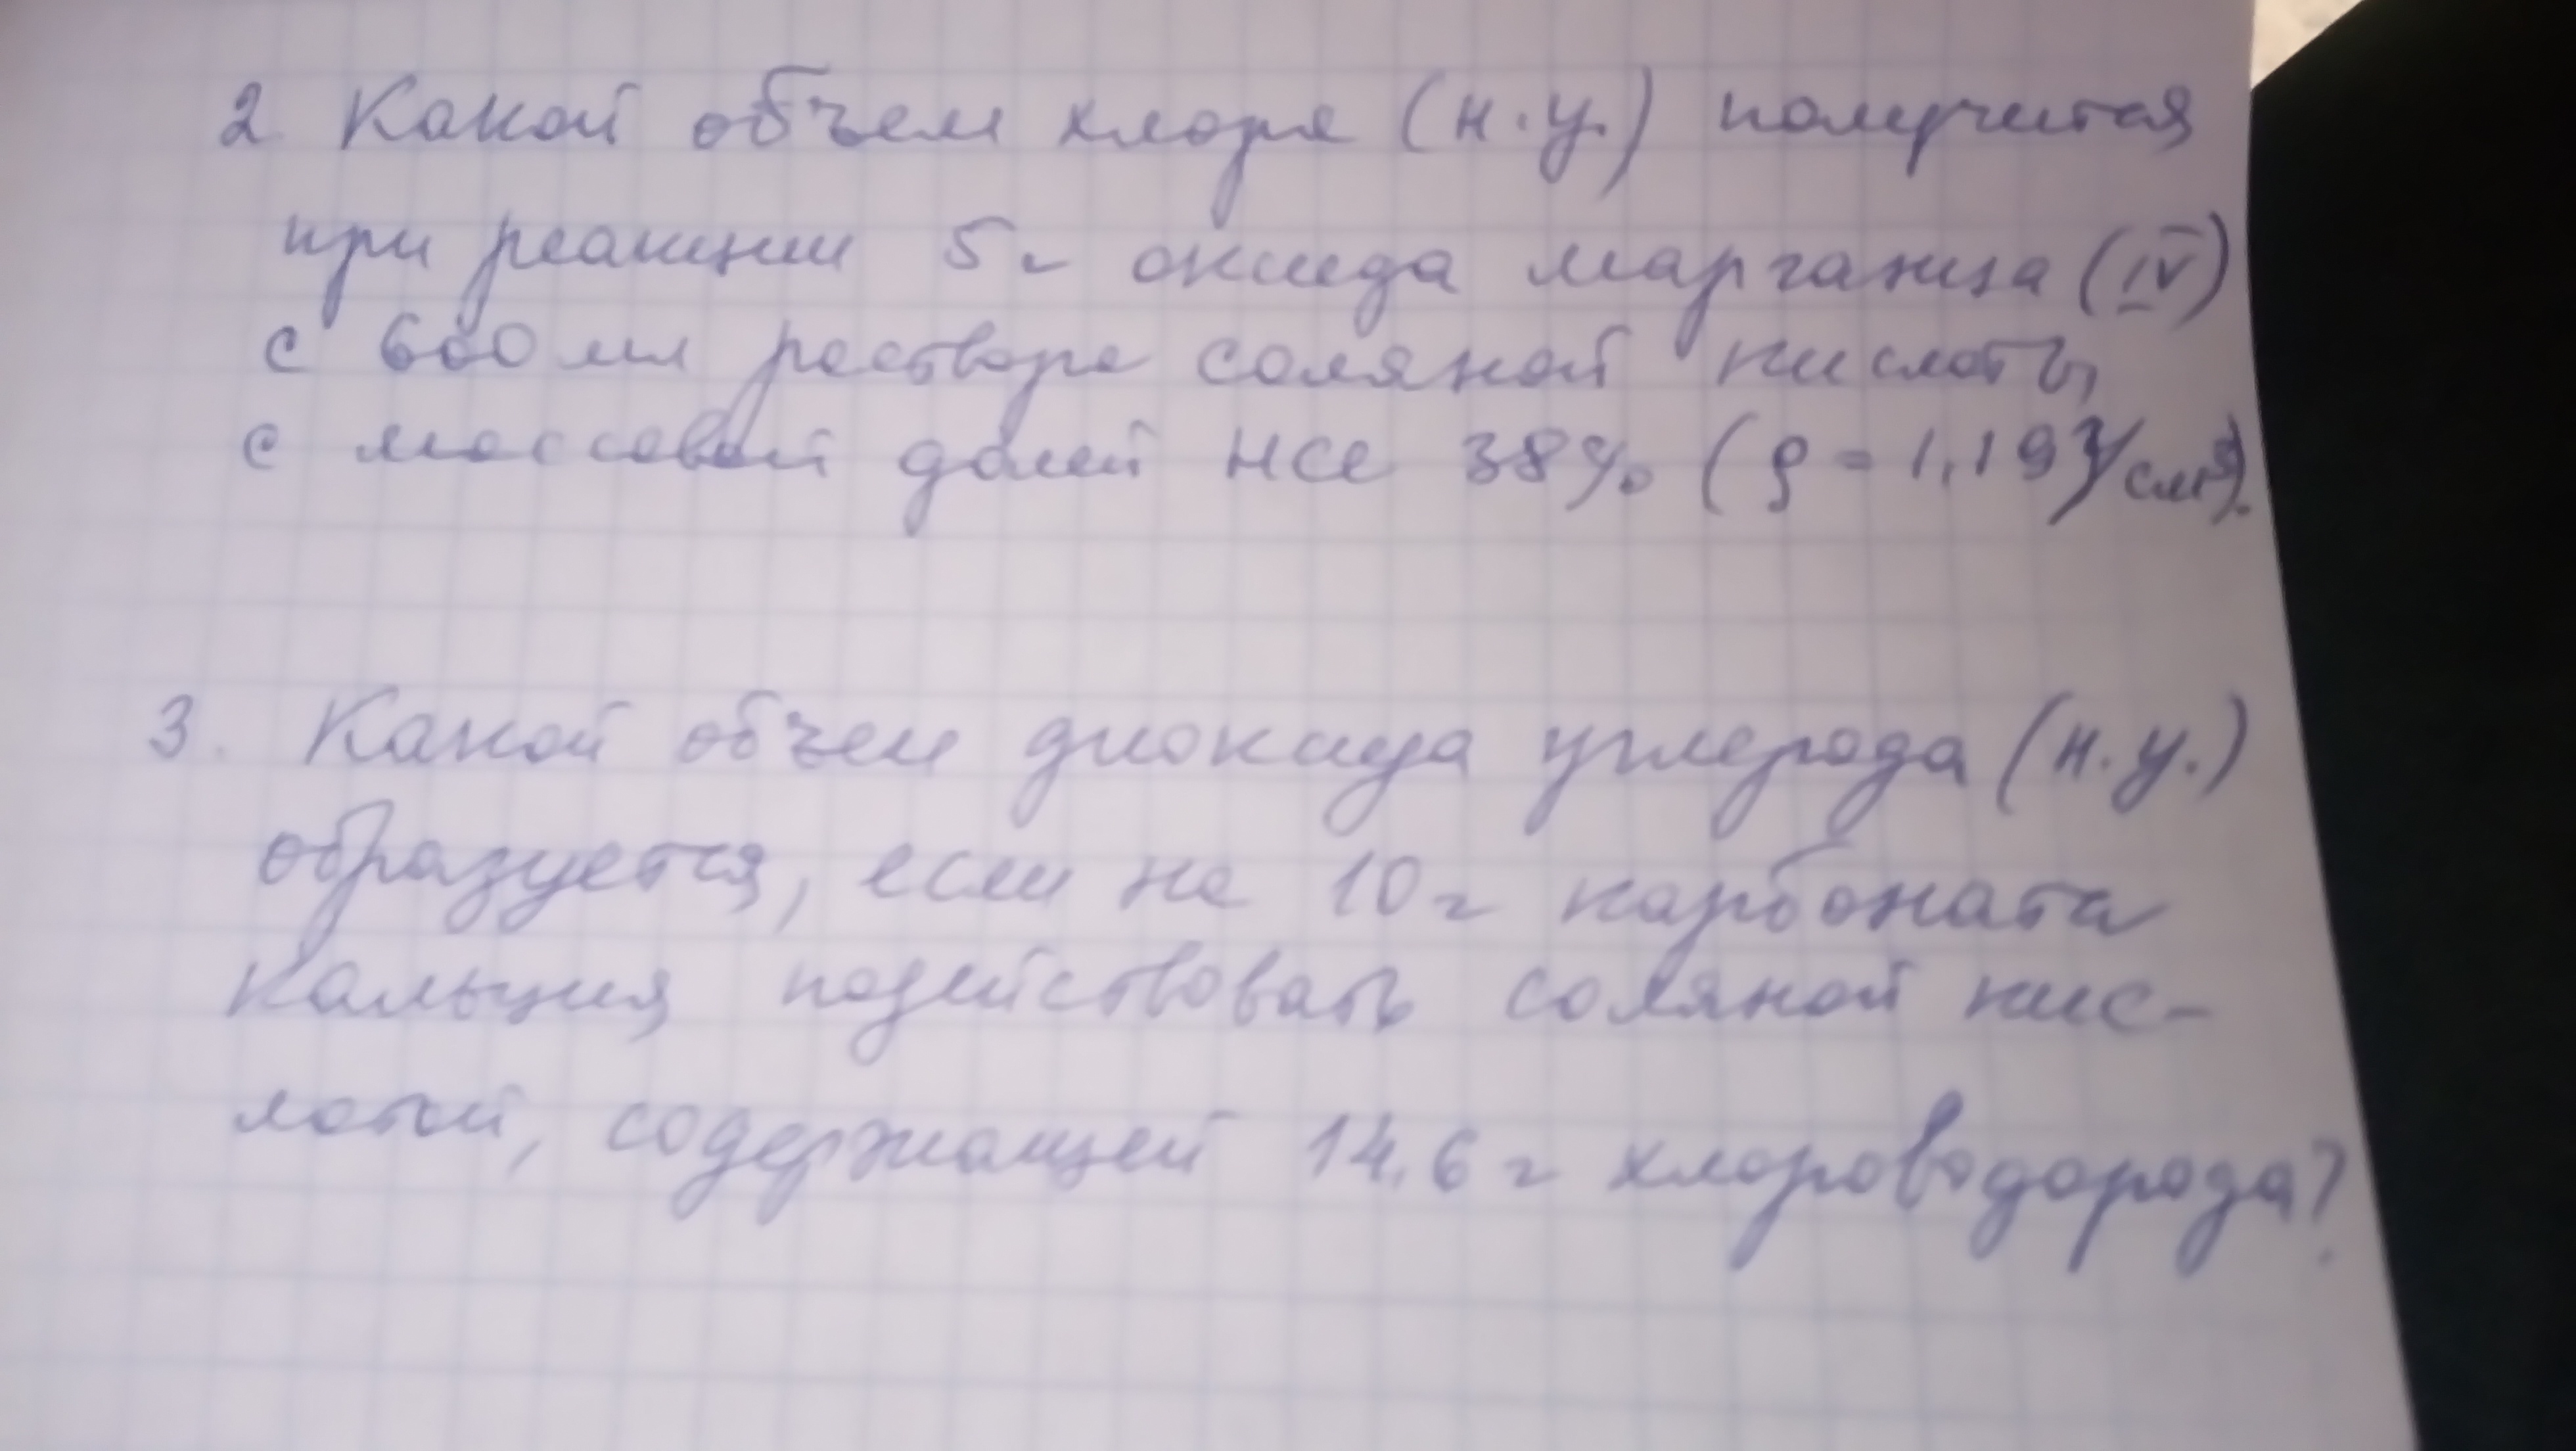 2 Какой объем хлора (н.у.) получится
при реакции 5 г оксида марганца (IV)
с 600 мл раствора соляной кислоты
с массовой долей HCl 38% (ρ = 1,19 г/см³).
3. Какой объем диоксида углерода (н.у.)
образуется, если на 10 г карбоната
кальция подействовать соляной кис-
лотой, содержащей 14,6 г хлороводорода?